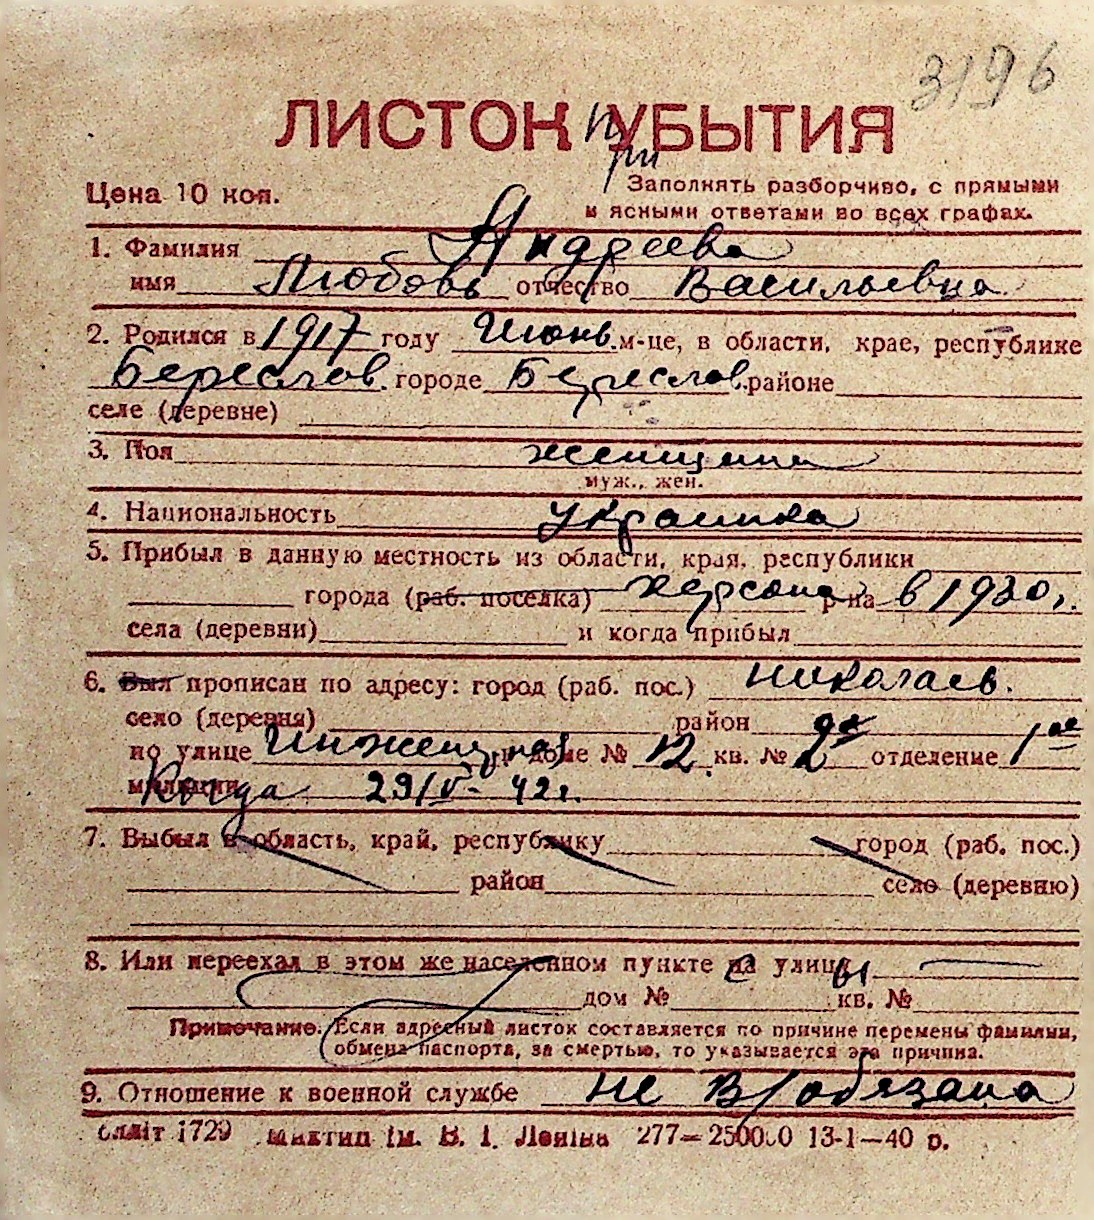 3196
ЛИСТОК при УБЫТИЯ
Цена 10 коп.
Заполнять разборчиво, с прямыми
и ясными ответами во всех графах.
1. Фамилия Андреева
имя Любовь отчество Васильевна
2. Родился в 1917 году Июнь м-це, в области, крае, республике
Береслов. городе Береслов. районе
селе (деревне)
3. Пол женщина
муж., жен.
4. Национальность украинка
5. Прибыл в данную местность из области, края, республики
города (раб. поселка) Херсона р-на в 1930 г.
села (деревни) и когда прибыл
6. Был прописан по адресу: город (раб. пос.) Николаев.
село (деревня) район
по улице доме № 12 кв. № 2 отделение 1ое
милиции Когда 29/V-42г.
7. Выбыл в область, край, республику город (раб. пос.)
район село (деревню)
8. Или переехал в этом же населенном пункте на улицу с ы
дом № кв. №
Примечание. Если адресный листок составляется по причине перемены фамилии,
обмена паспорта, за смертью, то указывается эта причина.
9. Отношение к военной службе не в/обязана
1729 ім. В. І. Леніна 277—250000 13-1—40 р.